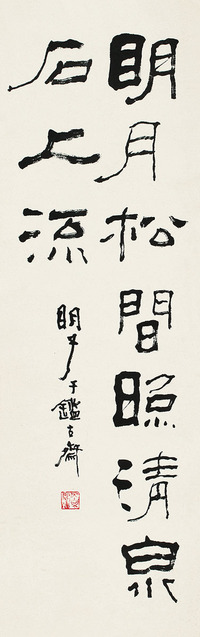 明月松間照清泉
石上流
于鑑古齋